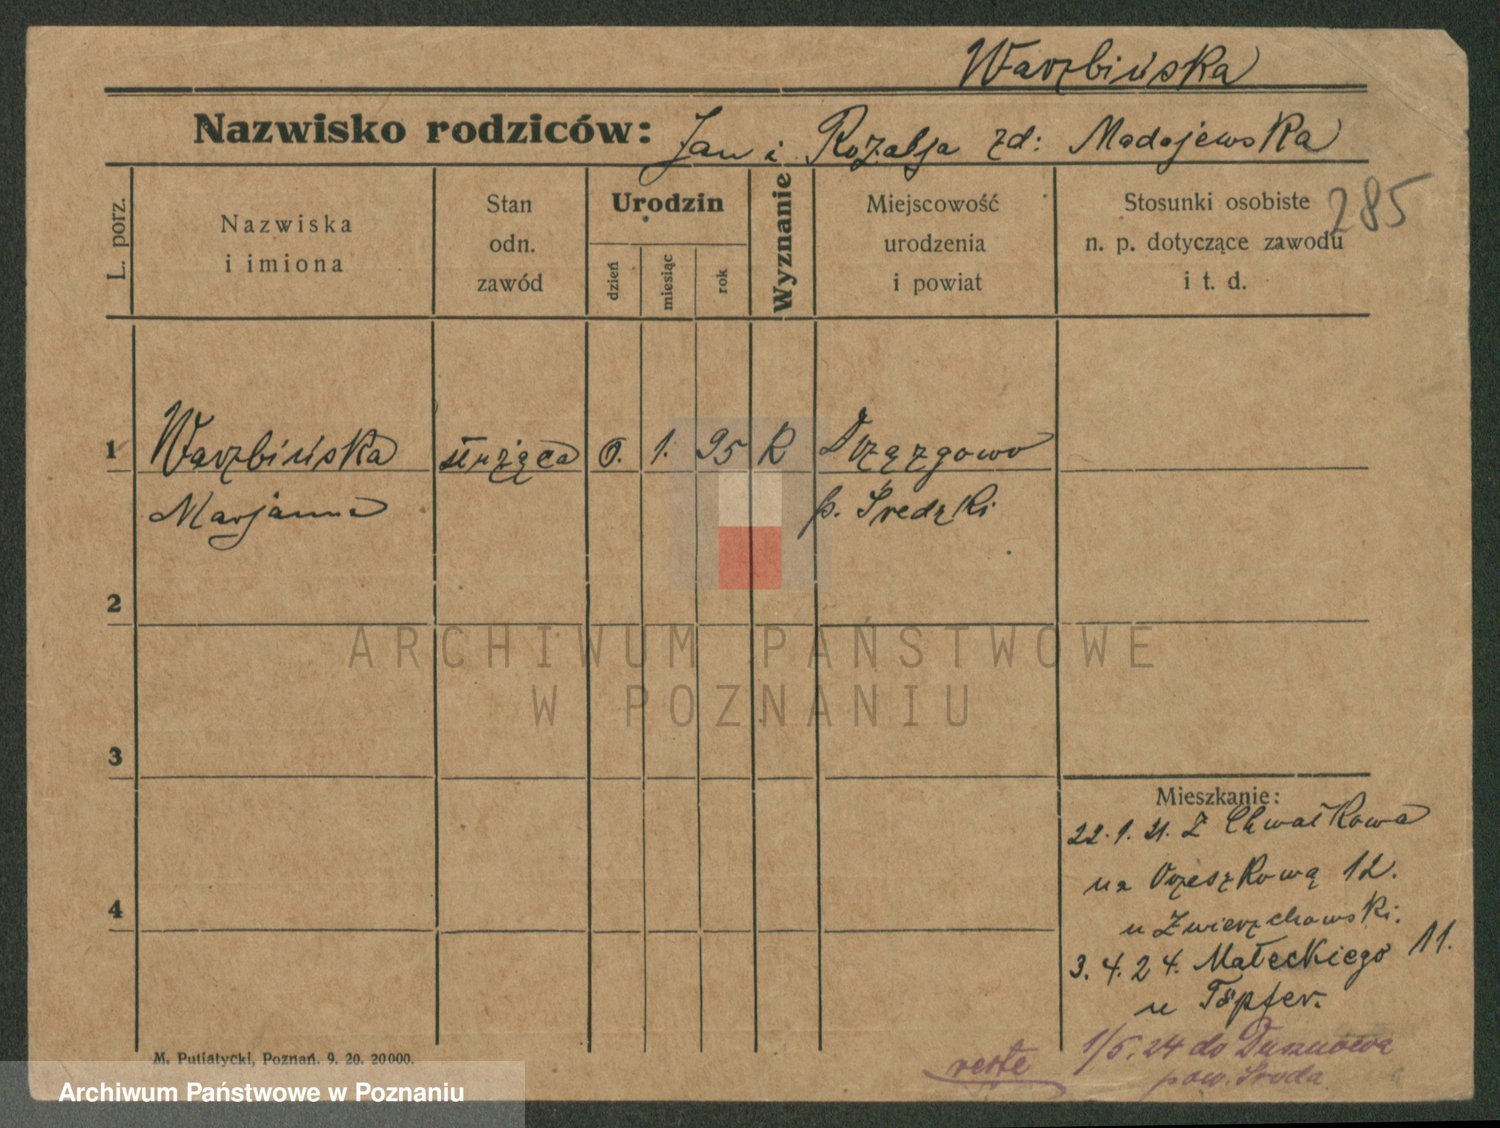 Warzbińska
Nazwisko rodziców: Jan i Rozalja zd: Madajewska
285
L. porz.
Nazwiska i imiona
Stan odn. zawód
Urodzin
dzień
miesiąc
rok
Wyznanie
Miejscowość urodzenia i powiat
Stosunki osobiste n. p. dotyczące zawodu i t. d.
1 Warzbińska służąca 1. 95 R Drzązgowo
Marjanna p. Średzki
2
ARCHIWUM PAŃSTWOWE
W POZNANIU
3
Mieszkanie:
22.1.21. Z Chwałkowa
na Orzeszkową 12.
u Zwierzchowski.
4
3.4.24. Małeckiego 11.
u Töpfer.
1/5.24 do
pow. Środa
M. Putiatycki, Poznań. 9. 20. 20000.
Archiwum Państwowe w Poznaniu